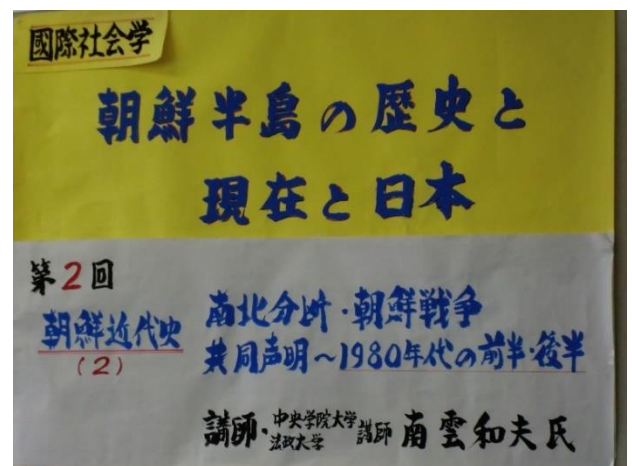 國際社会学
朝鮮半島の歴史と
現在と日本
第2回
朝鮮近代史
(2)
南北分断・朝鮮戦争
共同声明~1980年代の前半・後半
講師・中央学院大学
法政大学
講師 南雲和夫氏